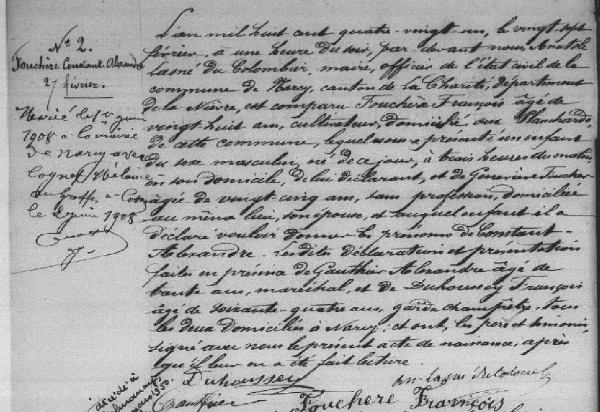 N° 2.
Fouchère Constant-Alexandre
27 février.
Marié le 1er juin
1908 à la mairie
de Narcy avec
Cognet Mélanie
au Greffe, à Cosne
le juin 1908
L'an mil huit cent quatre-vingt-un, le vingt sept
février, à une heure du soir, par devant nous, Anatole
Lasné du Colombier, maire, officier de l'état civil de la
commune de Narcy, canton de la Charité, département
de la Nièvre, est comparu Fouchère François âgé de
vingt huit ans, cultivateur, domicilié aux Planchards
de cette commune, lequel nous a présenté un enfant
du sexe masculin, né de ce jour, à trois heures du matin,
en son domicile, de lui déclarant, et de Geneviève
âgée de vingt-cinq ans, sans profession, domiciliée
au même lieu, son épouse, et auquel enfant il a
déclaré vouloir donner les prénoms de Constant-
Alexandre. Lesdites déclaration et présentation
faites en présence de Gauthier Alexandre âgé de
trente ans, maréchal, et de Duhoussey François
âgé de soixante-quatre ans, garde champêtre, tous
les deux domiciliés à Narcy; et ont, les père et témoins,
signé avec nous le présent acte de naissance, après
qu'il leur en a été fait lecture.
Duhoussey
Gauthier
Fouchere François
décédé à
1950.